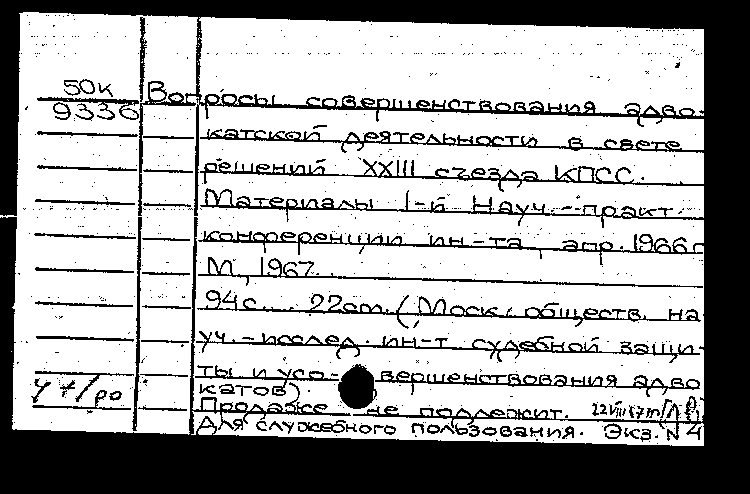 50к Вопросы совершенствования адво-
9336 катской деятельности в свете
решений XXIII съезда КПСС.
Материалы I-й Науч.-практ.
конференции ин-та, апр. 1966г
М., 1967.
94с. 22см. (Моск. обществ. на
уч.-исслед. ин-т судебной защи-
ты и усо- вершенствования адво
катов)
Продаже не подлежит.
Для служебного пользования. Экз. N 4